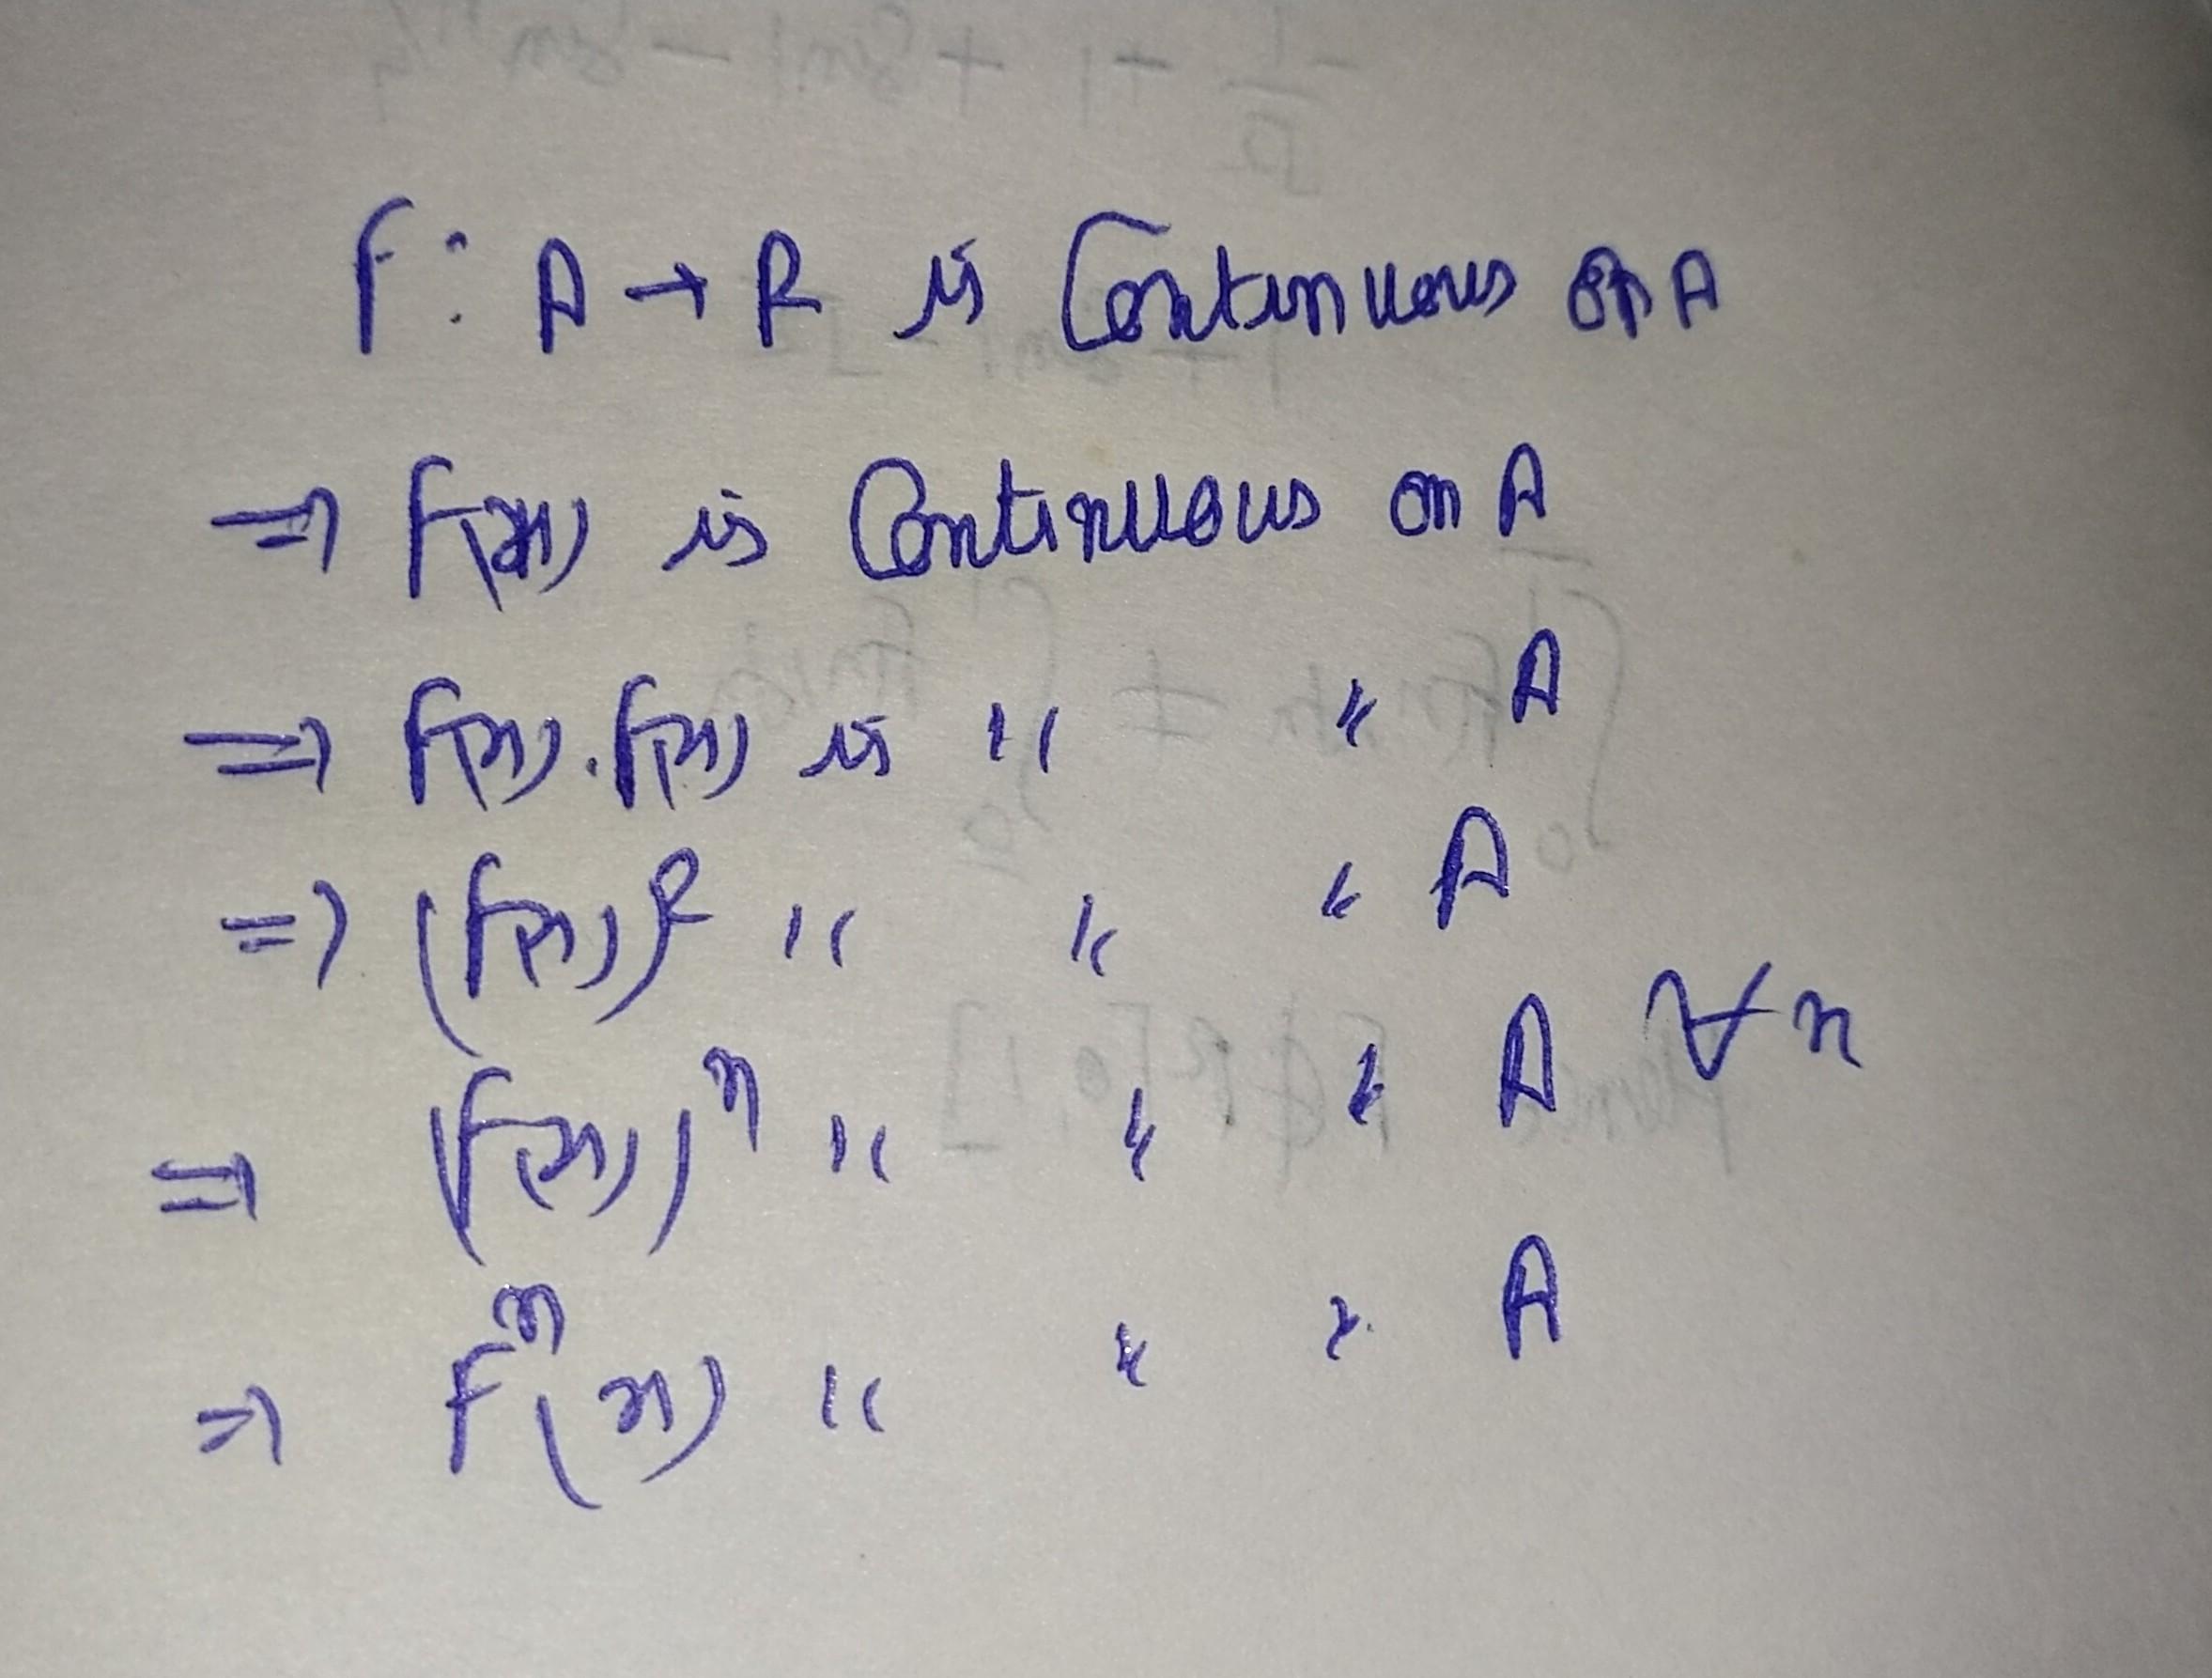 f: A → R is Continuous on A
⇒ f(x) is Continuous on A
⇒ f(x).f(x) is " " A
⇒ (f(x))² " " " A
⇒ (f(x))ⁿ " " " A ∀ n
⇒ fⁿ(x) " " " A